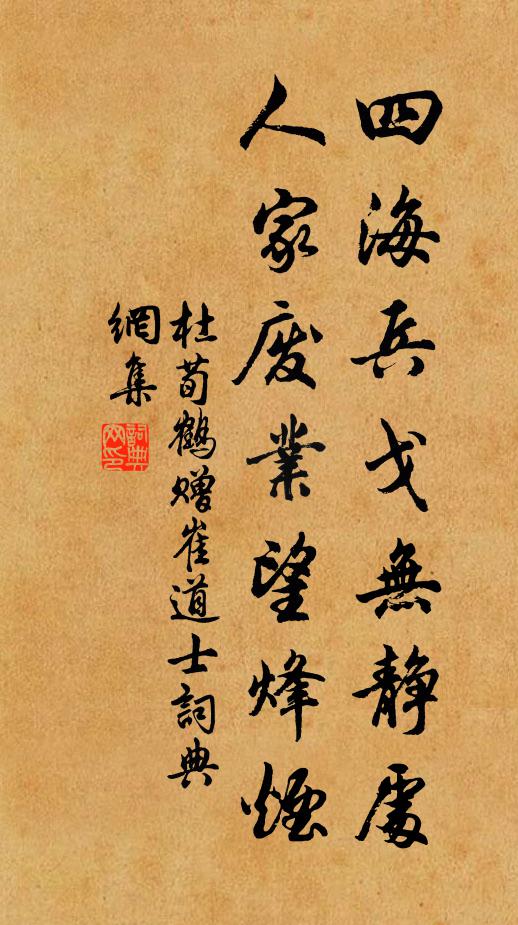 四海兵戈無静處
人家废業望烽煙
杜荀鶴赠崔道士詞典
網集
詞典网印